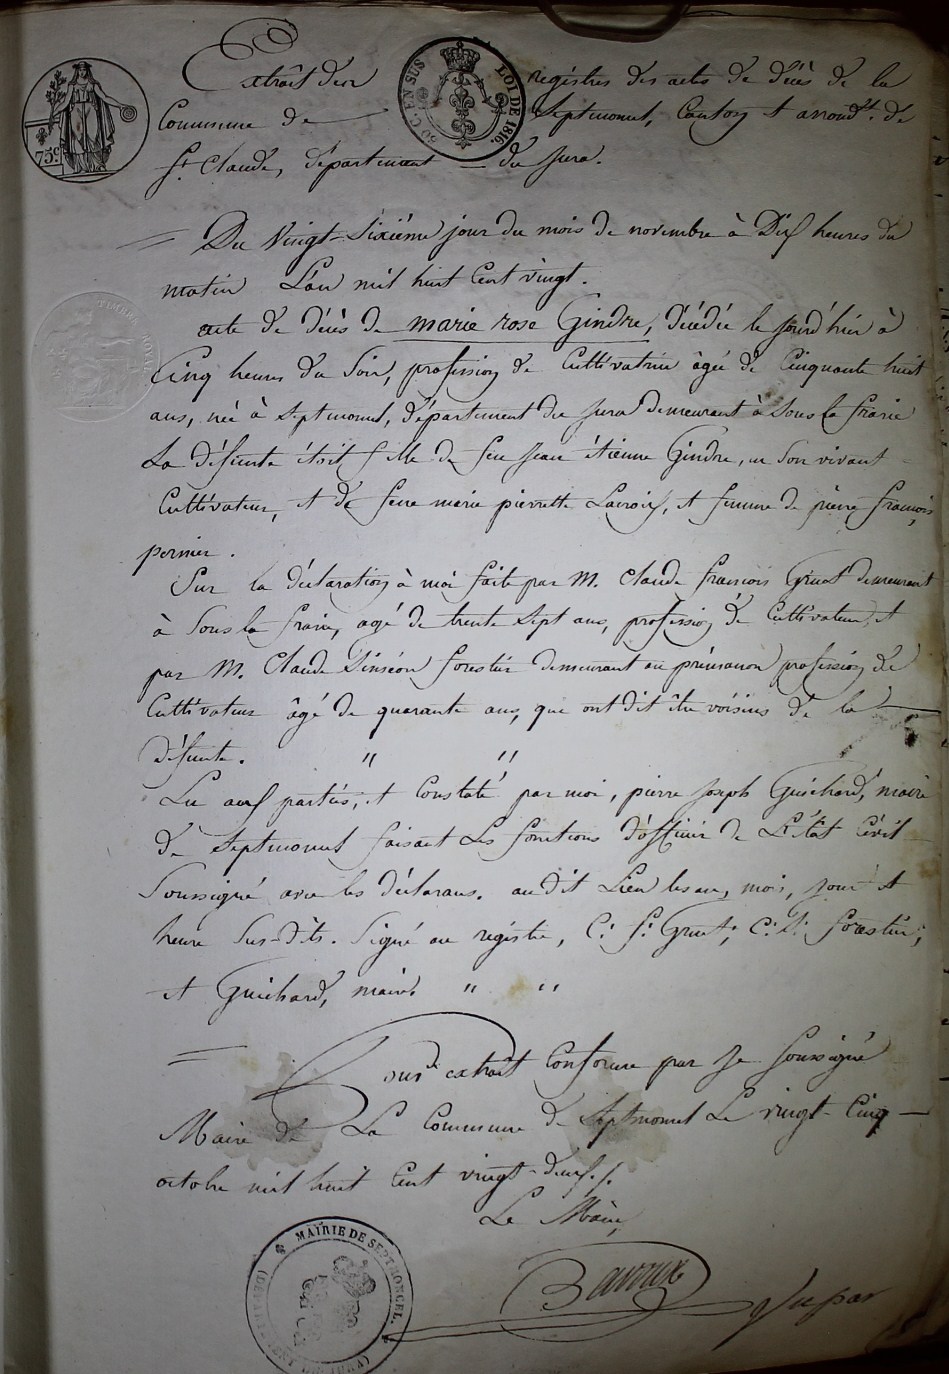 Extrait des registres des actes de décès de la
Commune de Septmoncel, Canton et arrond.t de
St. Claude, département du Jura.
75c
50 C. EN SUS
LOI DE 1816.
TIMBRE ROYAL
Du Vingt-Sixième jour du mois de novembre à Dix heures du
matin L'an mil huit Cent vingt.
acte de décès de marie rose Gindre, décédée le jourd'hier à
Cinq heures du Soir, profession de Cultivatrice âgée de Cinquante huit
ans, née à Septmoncel, département du Jura demeurant à Sous la frasse
La défunte étoit fille de feu Jean étienne Gindre, en Son vivant
Cultivateur, et de feue marie pierrette Lacroix, et femme de pierre françois
pernier.
Sur la déclaration à moi faite par M. Claude françois Gruet demeurant
à Sous la frasse, agé de trente Sept ans, profession de Cultivateur, et
par M. Claude Siméon forestier demeurant au prémanon profession de
Cultivateur âgé de quarante ans, que ont dit être voisins de la
défunte. " "
Lu aux parties, et Constaté par moi, pierre Joseph Guichard, maire
de Septmoncel faisant Les fonctions d'officier de L'état Civil
Soussigné avec les déclarans. au dit Lieu les an, mois, jour et
heure Sus-dits. Signé au registre, C. f. Gruet; C. S. forestier;
et Guichard, maire " "
Pour extrait Conforme par Je Soussigné
Maire de La Commune de Septmoncel Le vingt-Cinq
octobre mil huit Cent vingt-deux./.
Le Maire,
MAIRIE DE SEPTMONCEL.